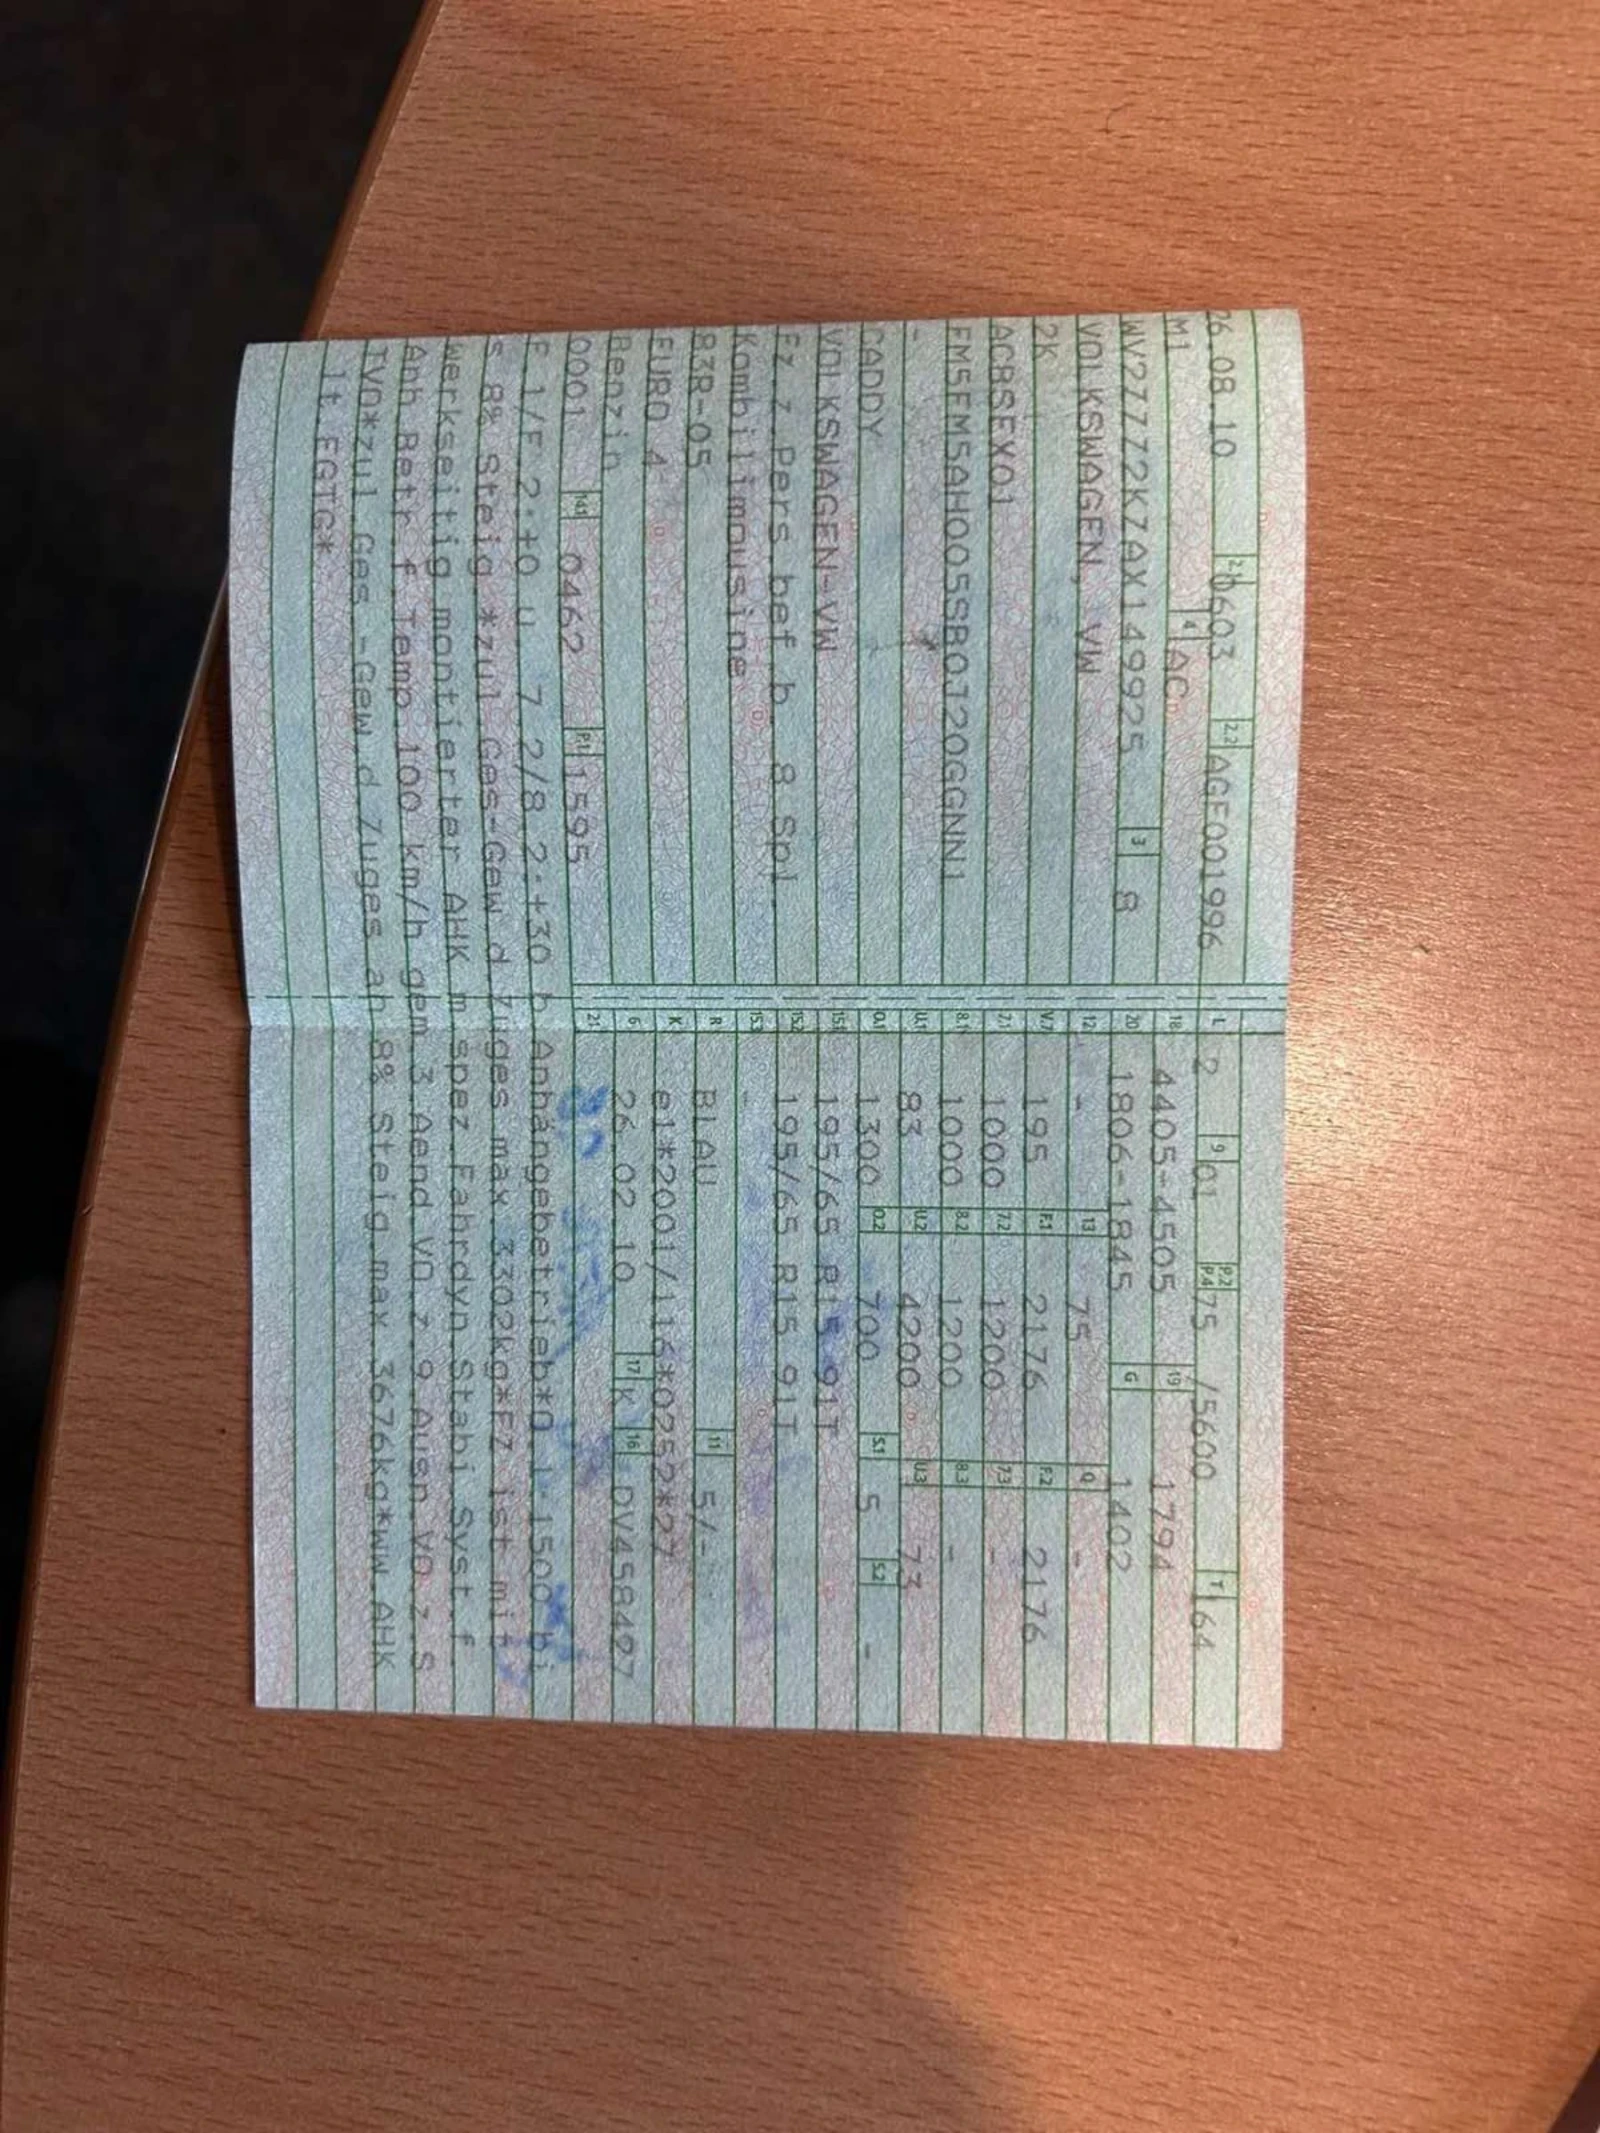 26.08.10 2.1 0603 2.2 AGE001996 L 2 9 01 P.2 P.4 75 /5600 T 164
M1 4 AC 18 4405-4505 19 1794
WV2ZZZ2KZAX149925 3 8 20 1806-1845 G 1402
VOLKSWAGEN, VW 12 - 13 75 Q -
2K V.7 195 F.1 2176 F.2 2176
ACBSEX01 7.1 1000 7.2 1200 7.3 -
FM5FM5AH0055SB0J20GGNN1 8.1 1000 8.2 1200 8.3 -
- U.1 83 U.2 4200 U.3 73
CADDY O.1 1300 O.2 700 S.1 5 S.2 -
VOLKSWAGEN-VW 15.1 195/65 R15 91T
Fz.z.Pers.bef.b. 8 Spl. 15.2 195/65 R15 91T
Kombilimousine 15.3 -
83R-05 R BLAU 11 5/-
EURO 4 K e1*2001/116*0252*27
Benzin 6 26.02.10 17 K 16 DV458497
0001 14.1 0462 P.1 1595 21
F.1/F.2:+0 u. 7.2/8.2:+30 b.Anhängebetrieb*O.1:1500 bi
s 8% Steig.*zul.Ges-Gew.d.Zuges max.3302kg*Fz ist mit
werkseitig montierter AHK m.spez.Fahrdyn.Stabi.Syst.f.
Anh.Betr.f.Temp.100 km/h gem.3.Aend.VO z.9.Ausn.VO.z.S
TVO*zul.Ges.-Gew.d.Zuges an 8% Steig.max.3676kg*ww.AHK
lt.EGTG*